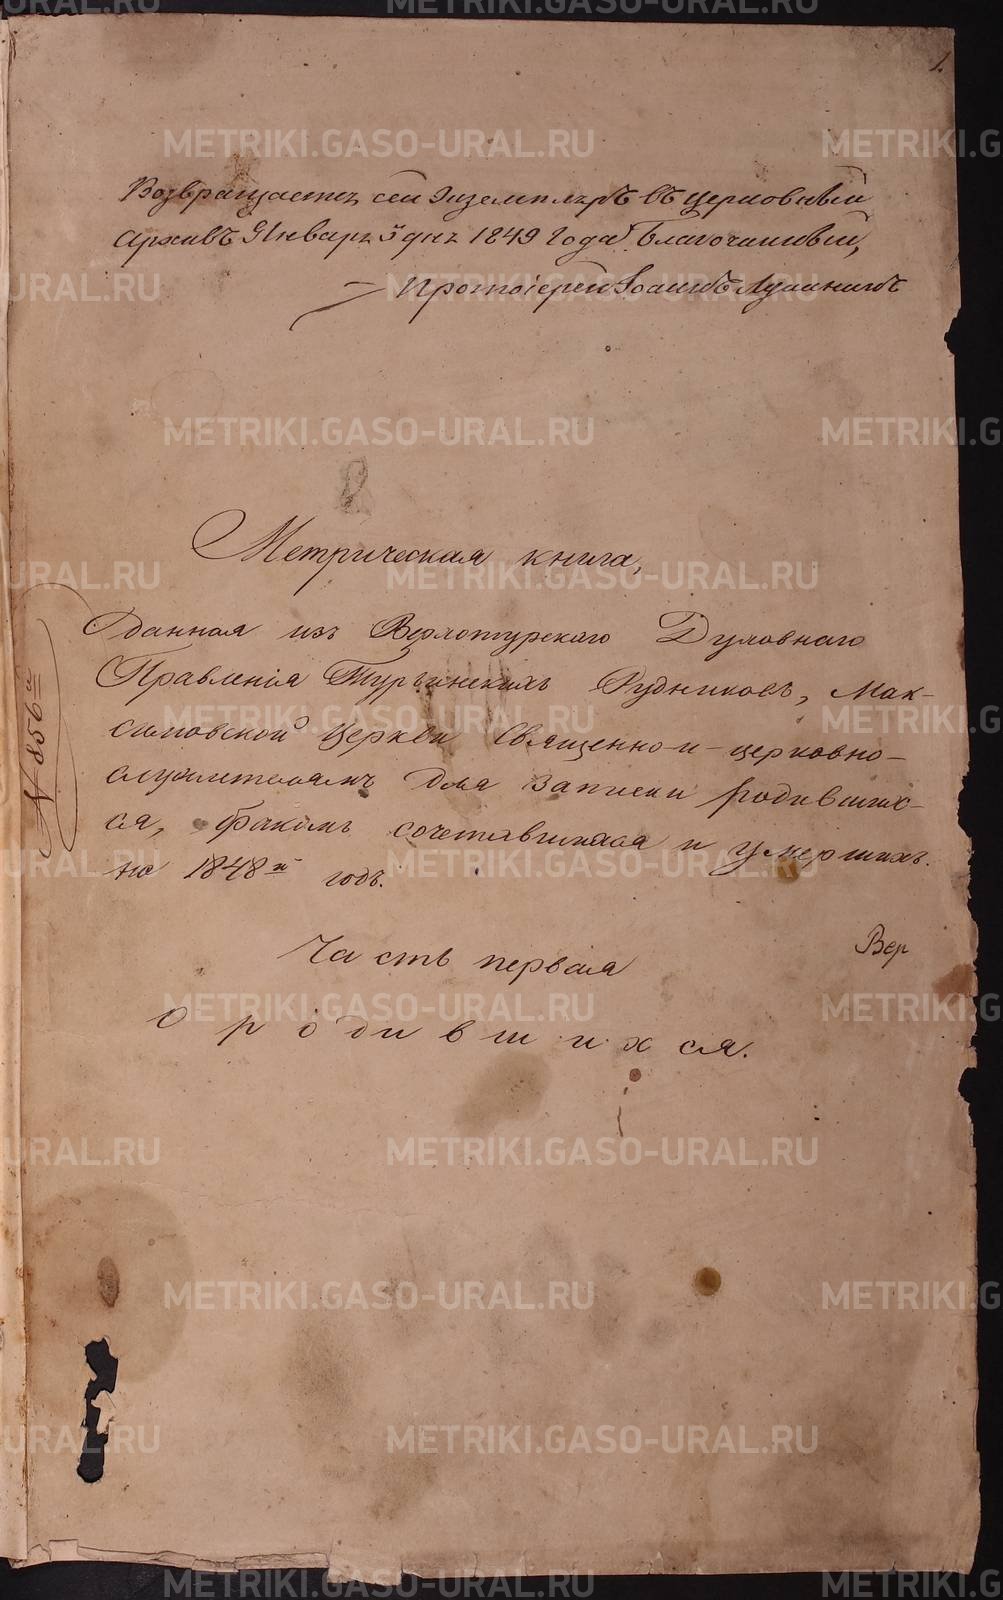 1.
Возвращаетъ сей Экземпляръ въ церковный
Архивъ Январъ 5 дня 1849 года Благочинный,
Протоіерей Іоаннъ
Метрическая книга,
данная изъ Верхотурскаго Духовнаго
Правленія Турьинскихъ Рудниковъ, Мак-
симовской церкви Священно-и-церковно-
служителямъ для записки родивших-
ся, бракомъ сочетавшихся и умершихъ.
на 1848й годъ.
№ 856й
Часть первая
Вер
о родившихся.
METRIKI.GASO-URAL.RU